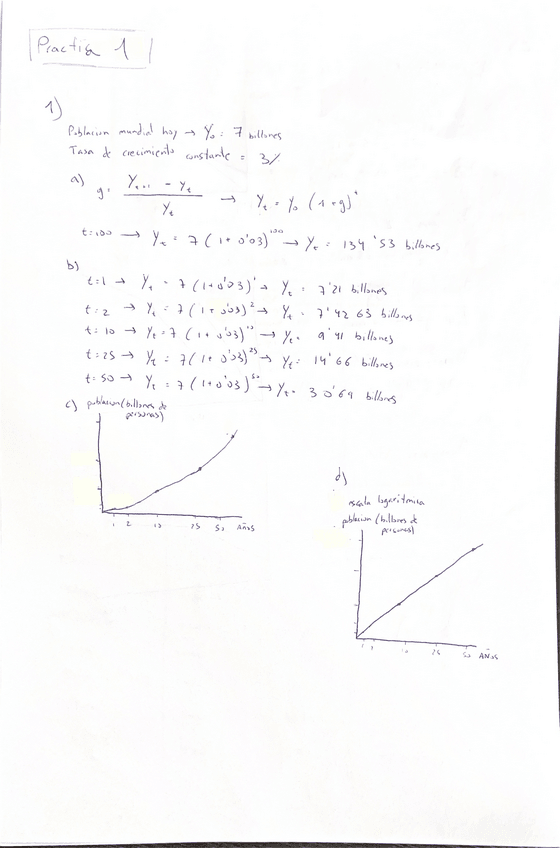 Practica 1
1)
Poblacion mundial hoy → Y₀ = 7 billones
Tasa de crecimiento constante = 3%
a) g = (Yₜ₊₁ - Yₜ) / Yₜ → Yₜ = Y₀ (1+g)ᵗ
t=100 → Yₜ = 7 (1+0'03)¹⁰⁰ → Yₜ = 134'53 billones
b)
t=1 → Yₜ = 7 (1+0'03)¹ → Yₜ = 7'21 billones
t=2 → Yₜ = 7 (1+0'03)² → Yₜ = 7'4263 billones
t=10 → Yₜ = 7 (1+0'03)¹⁰ → Yₜ = 9'41 billones
t=25 → Yₜ = 7 (1+0'03)²⁵ → Yₜ = 14'66 billones
t=50 → Yₜ = 7 (1+0'03)⁵⁰ → Yₜ = 30'69 billones
c) poblacion (billones de
personas)
1 2 10 25 50 Años
d)
escala logaritmica
poblacion (billones de
personas)
1 2 10 25 50 Años